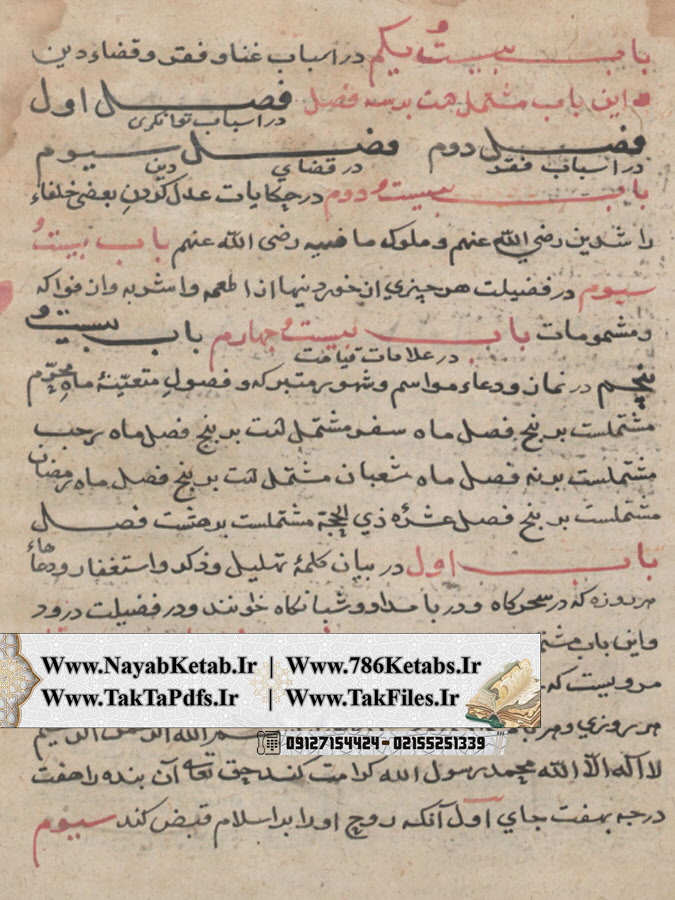 باب بیست و یکم در اسباب غنا و فقر و قضاء دین
و این باب مشتمل است بر سه فصل فصل اول
در اسباب توانگری
فصل دوم فصل سیوم
در اسباب فقر در قضاي دین
باب بیست و دوم در حکایات عدل کردن بعضی خلفاء
راشدین رضي الله عنهم و ملوک ماضیه رضی الله عنهم باب بیست و
سیوم در فضیلت هر چیزي از خوردنیها از اطعمه و اشربه و از فواکه
و مشمومات باب بیست و چهارم باب بیست و
در علامات قیامت
پنجم در نماز و دعاء مواسم و شهور متبرکه و فصول متعینهٔ ماه محرّم
مشتملست بر پنج فصل ماه سفر مشتمل است بر پنج فصل ماه رجب
مشتملست بر نه فصل ماه شعبان مشتمل است بر پنج فصل ماه رمضان
مشتملست بر پنج فصل عشرهٔ ذي الحجة مشتملست بر هشت فصل
باب اول در بیان کلمهٔ تهلیل و ذکر و استغفار و دعاهاء
هر روزه که در سحرگاه و در بامداد و شبانگاه خوانند و در فضیلت درود
و این باب
Www.NayabKetab.Ir | Www.786Ketabs.Ir
Www.TakTaPdfs.Ir | Www.TakFiles.Ir
مرویست که
هر روزي الله الرحمن الرحیم
09127154424 - 02155251339
لا اله الّا الله محمد رسول الله کرامت کند حق تعالی آن بنده را هفت
درجه بهفت جاي اول آنکه روح او را بر اسلام قبض کند سیوم